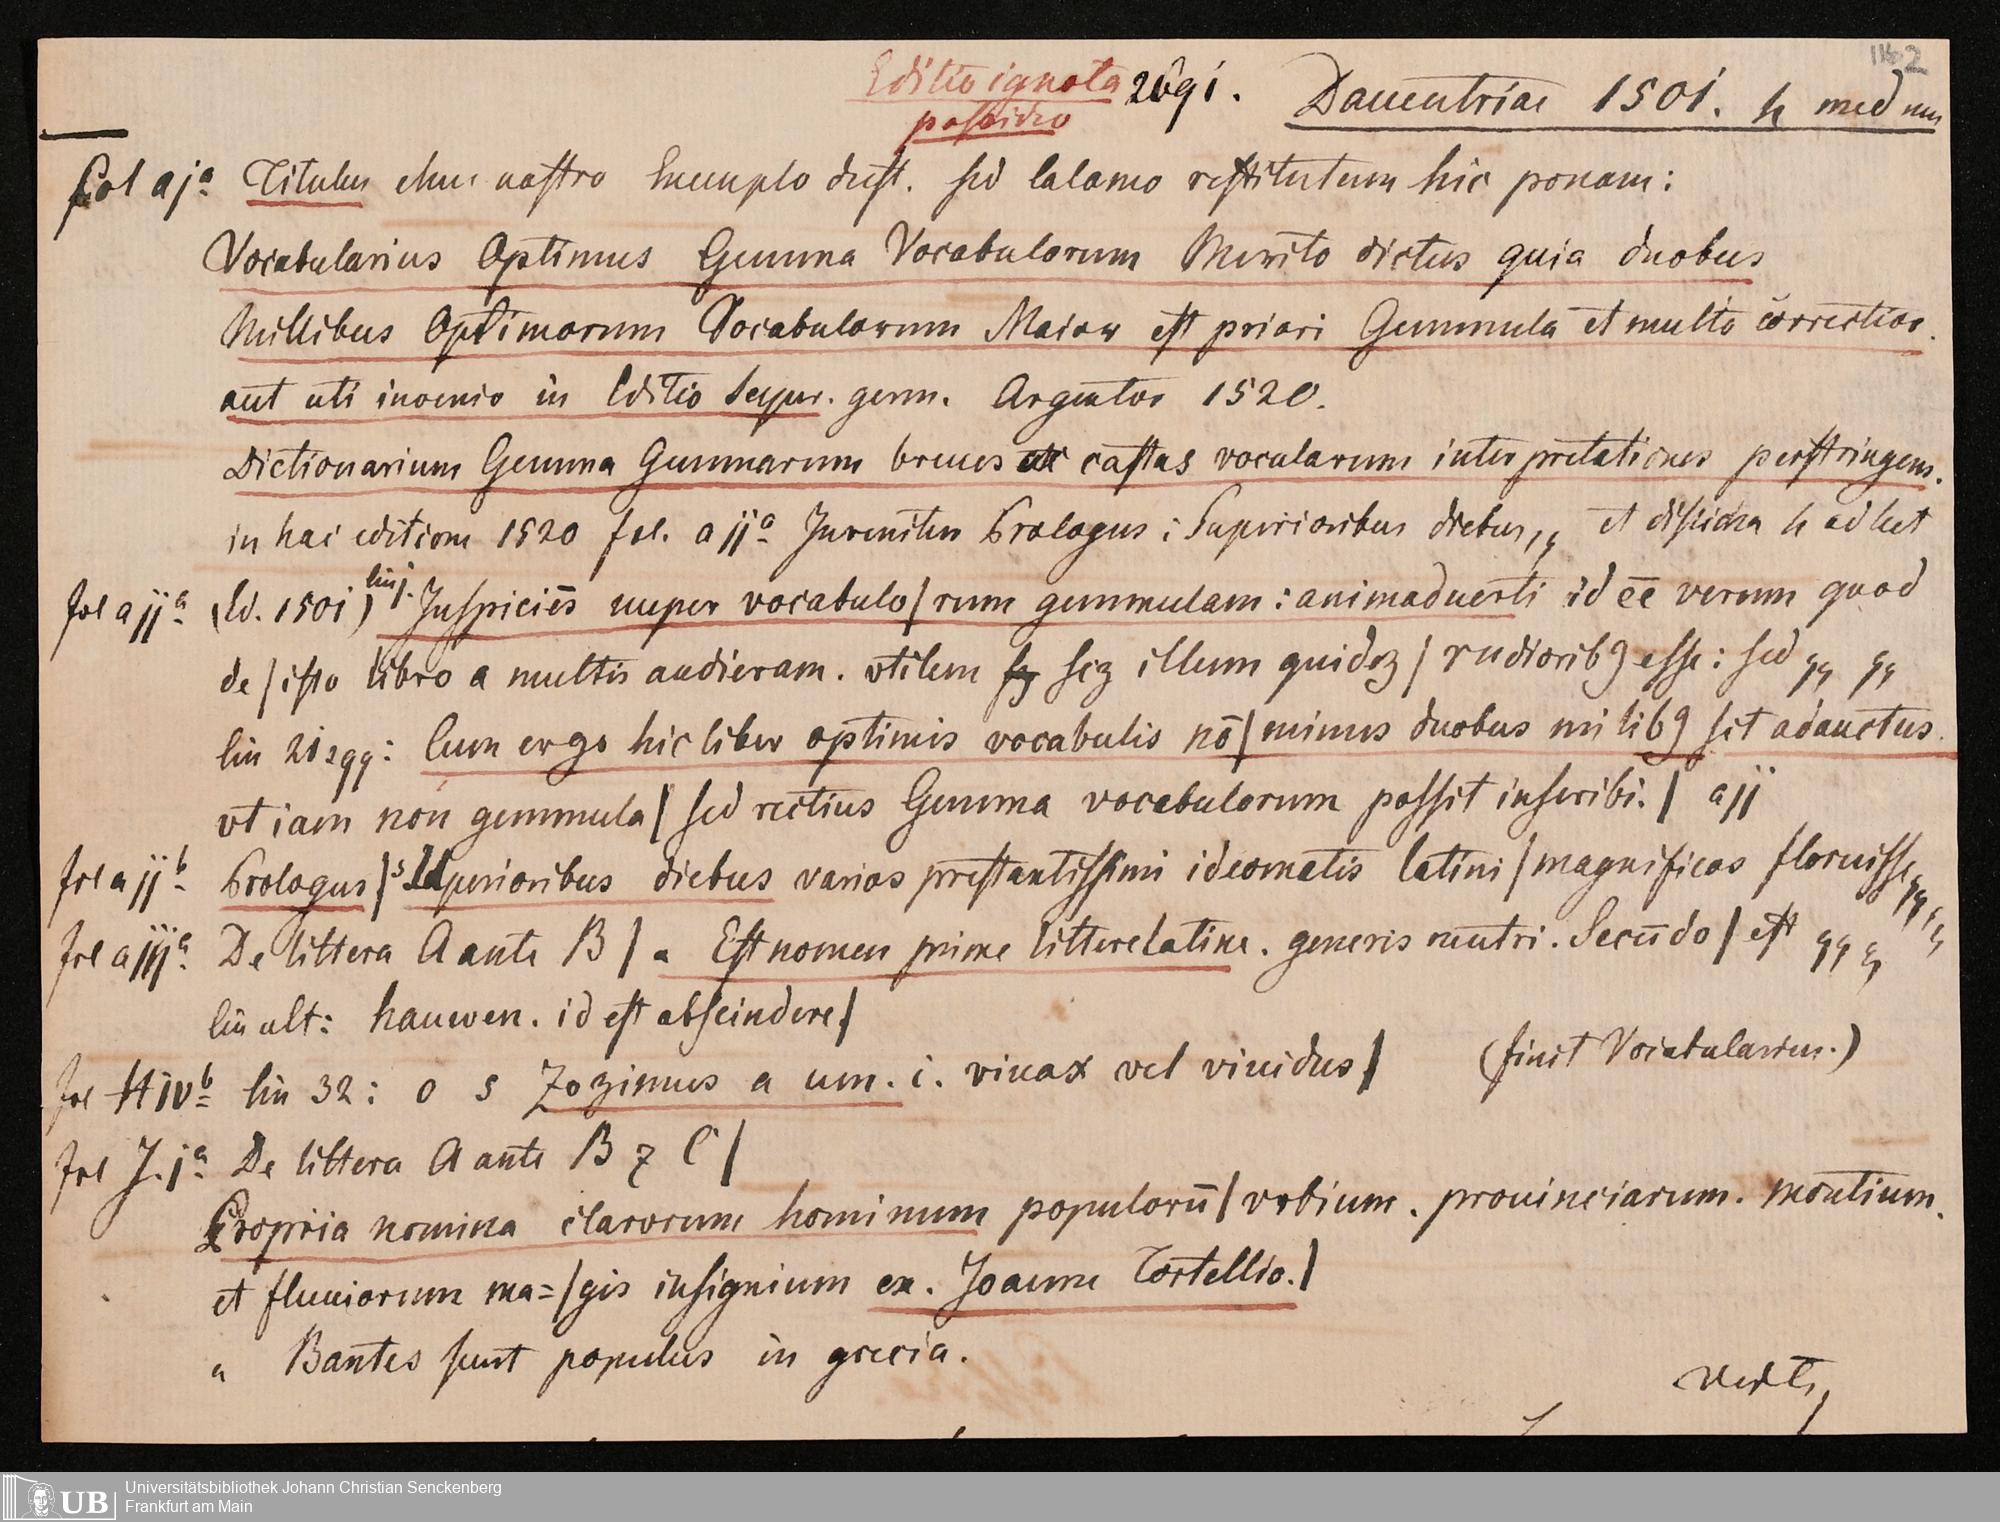 1142
Editio ignota 2691. Dauentriae 1501. h med
possideo
fol aja Titulus nostro Exemplo deest. sed calamo restitutum hic ponam:
Vocabularius Optimus Gemma Vocabulorum Merito dictus quia duobus
Millibus Optimorum Vocabulorum Maior est priori Gemmula et multo correctior.
aut uti inuenio in Editio germ. Argentor 1520.
Dictionarium Gemma Gemmarum breues castas vocularum interpretationes perstringens.
in hac editione 1520 fol. a jja Prologus: Superioribus diebus,,
fol a jja (Ed. 1501) lin j. Inspiciēs nuper vocabulo/rum gemmulam: animaduerti id eē verum quod
de/isto libro a multis audieram. vtilem scz illum quidez/rudiorib9 esse: sed qq qq
lin 21 sqq: Cum ergo hic liber optimis vocabulis nō/minus duobus milib9 sit adauctus.
vt iam non gemmula/sed rectius Gemma vocabulorum possit inscribi./ ajj
fol a jjb Prologus/sUperioribus diebus varios prestantissimi ideomatis latini/magnificos floruisse qq qq
fol a jjja De littera A ante B/ a Est nomen prime litterelatine. generis neutri. Secūdo/est qq qq
lin ult: hauwen. id est abscindere/
fol H ivb lin 32: o s Zozimus a um. i. viuax vel viuidus/ (finit Vocabularius.)
fol J. ja De littera A ante B z C/
Propria nomina clarorum hominum populorū/vrbium. prouinciarum. montium.
et fluuiorum ma=/gis insignium ex. Joanne Tortellio./
a Bantes sunt populus in grecia.
verte
UB
Universitätsbibliothek Johann Christian Senckenberg
Frankfurt am Main